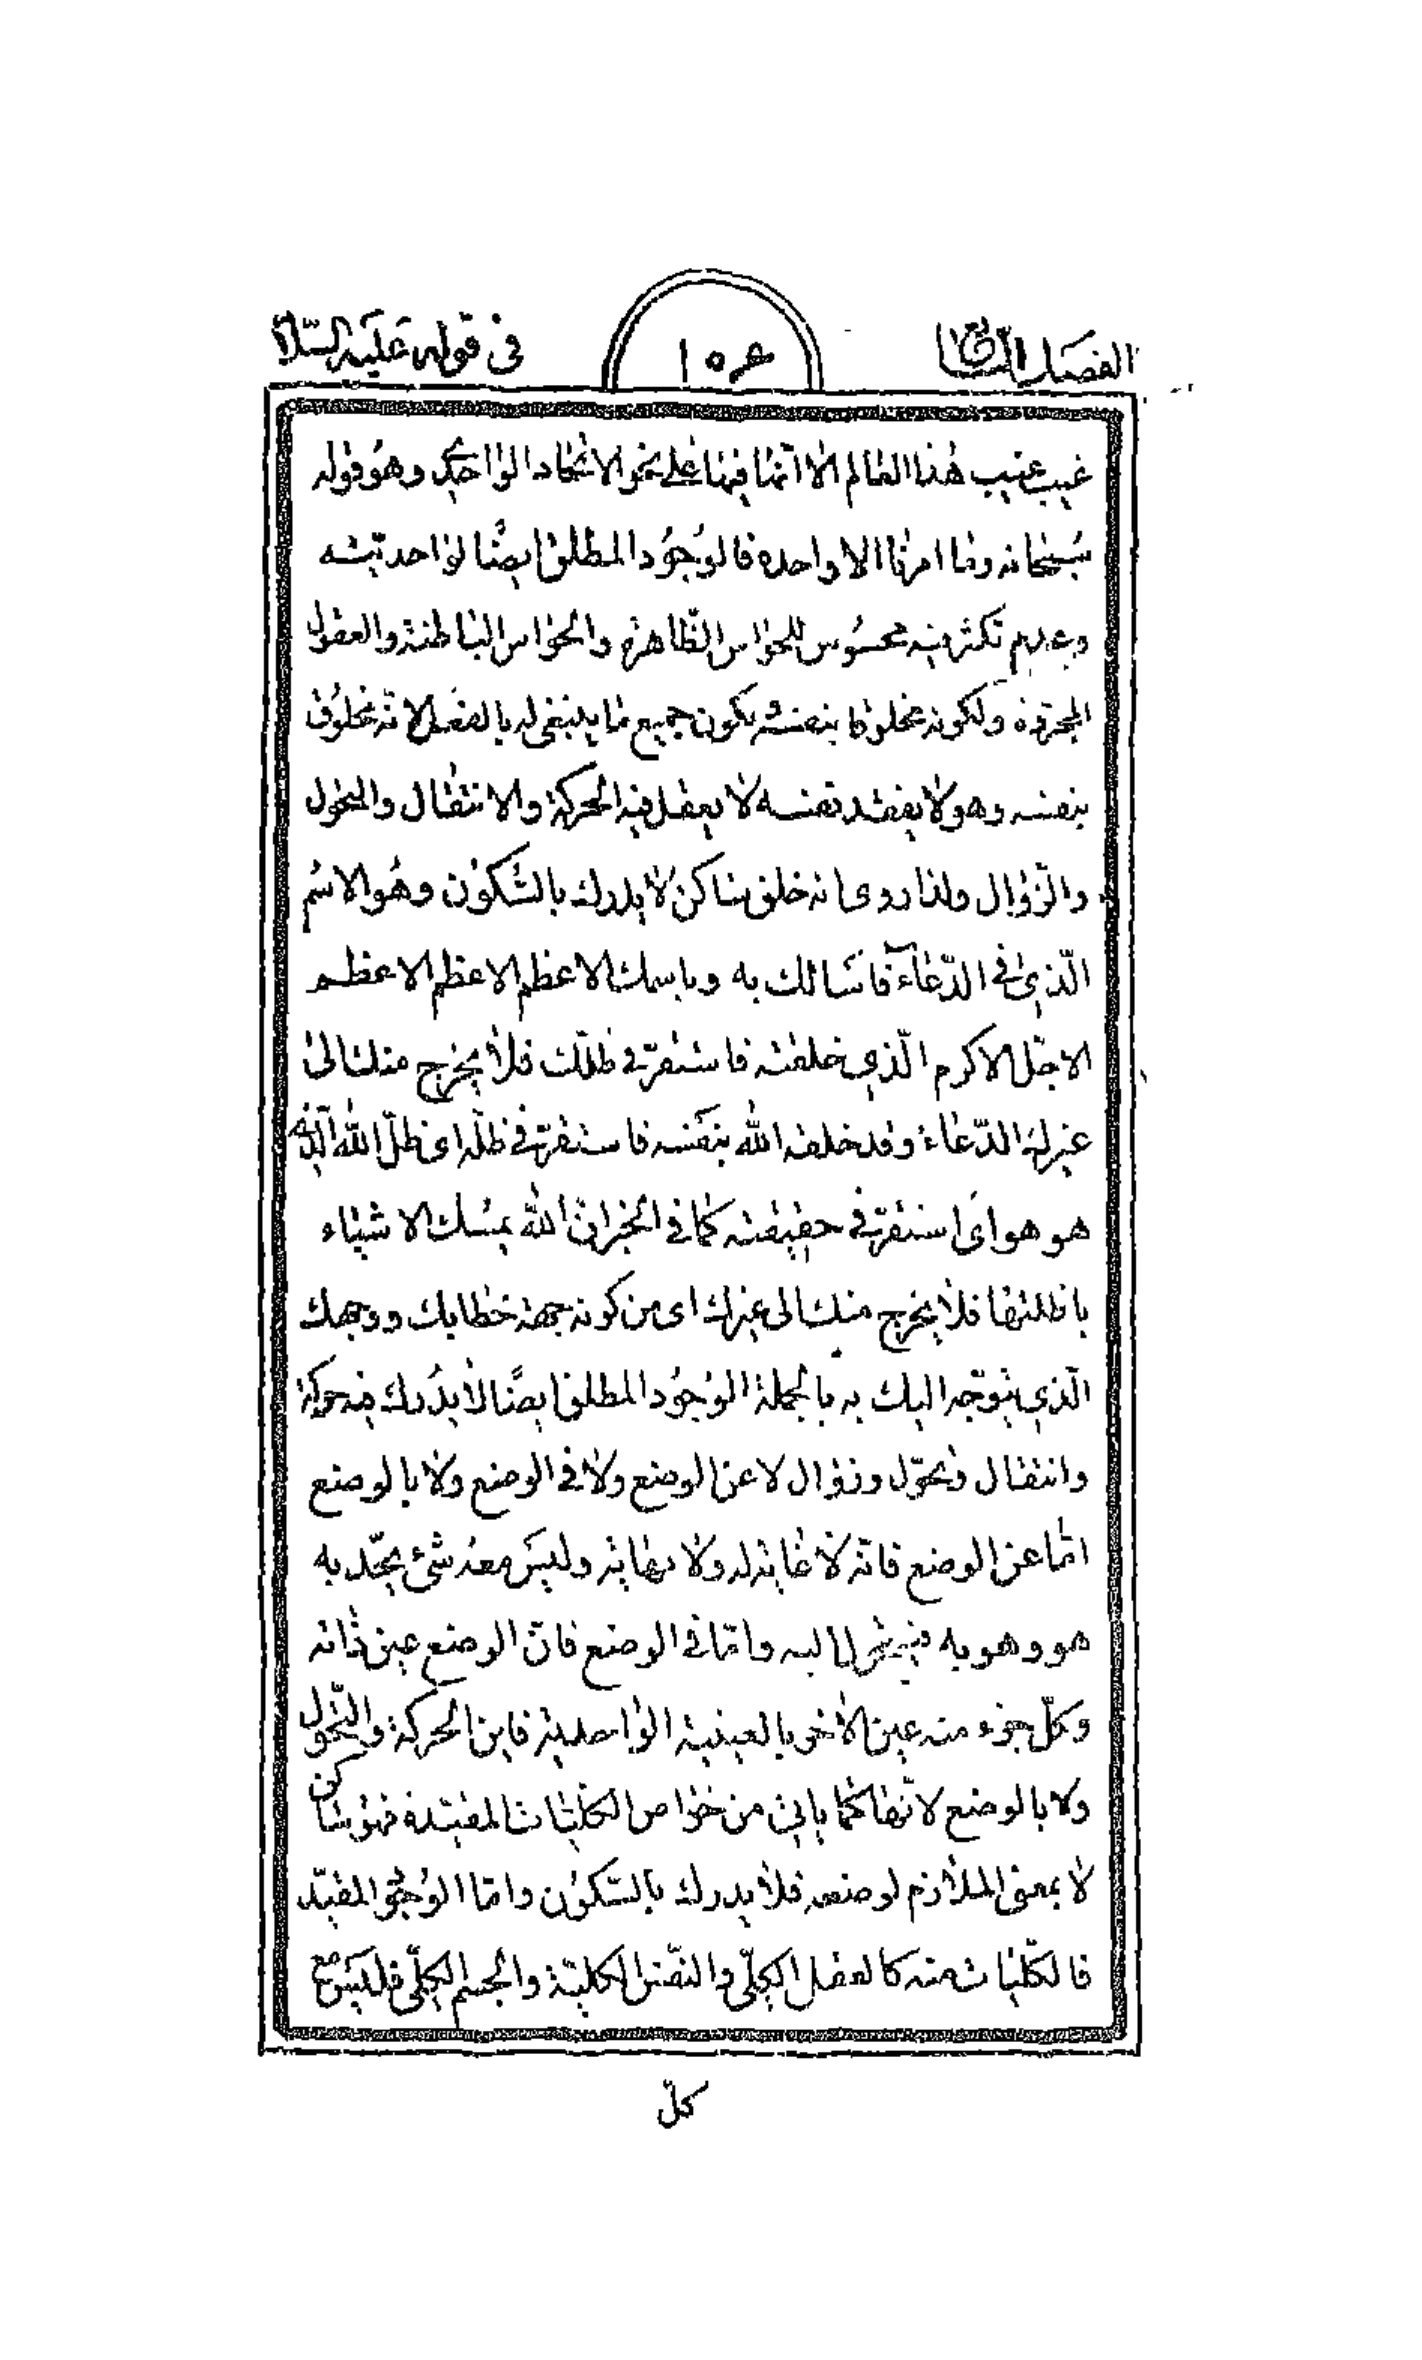 الفصل السابع
١٥۶
فى قوله عليه السلام
غيب عيب هذا العالم الا انها فيها على نحو الاتحاد الواحدى وهو قوله
سبحانه وما امرنا الا واحده فالوجود المطلق ايضا لواحديته
وعدم تكثر فيه محسوس للحواس الظاهرة والحواس الباطنة والعقول
المجردة ولكونه مخلوقا بنفسه يكون جميع ما ينبغى له بالفعل لانه مخلوق
بنفسه وهو لا يفقد نفسه لا يعقل فيه الحركة والانتقال والتحول
والزوال ولذا روى انه خلق ساكن لا يدرك بالسكون وهو الاسم
الّذى فى الدّعاء فاسالك به وباسمك الاعظم الاعظم الاعظم
الاجل الاكرم الّذي خلقته فاستقرّ فى ظلّك فلا يخرج منك الى
غيرك الدّعاء وقد خلقه الله بنفسه فاستقرّ فى ظلّه اى ظلّ الله الّذى
هو هو اى استقرّ فى حقيقته كما فى الخبر انّ الله يمسك الاشياء
باظلتها فلا يخرج منك الى غيرك اى من كونه جهة خطابك ووجهك
الّذي يتوجّه اليك به بالجملة الوجود المطلق ايضًا لا يدرك فيه حركة
وانتقال وتحوّل وزوال لا عن الوضع ولا فى الوضع ولا بالوضع
امّا عن الوضع فانّه لا غاية له ولا نهاية وليس معه شئ يحدّ به
هو وهو به فيتحول اليه وامّا فى الوضع فانّ الوضع عين ذاته
وكلّ جزء منه عين الاخر بالعينية الواحدية فاين الحركة والتّحول
ولا بالوضع لانّها كما ياتى من خواص الكليات المقيّدة فهو ساكن
لا بمعنى الملازم لوضعه فلا يدرك بالسّكون وامّا الوجود المقيّد
فالكلّيات منه كالعقل الكلّى والنفس الكليّة والجسم الكلّى فليس مع
كلّ